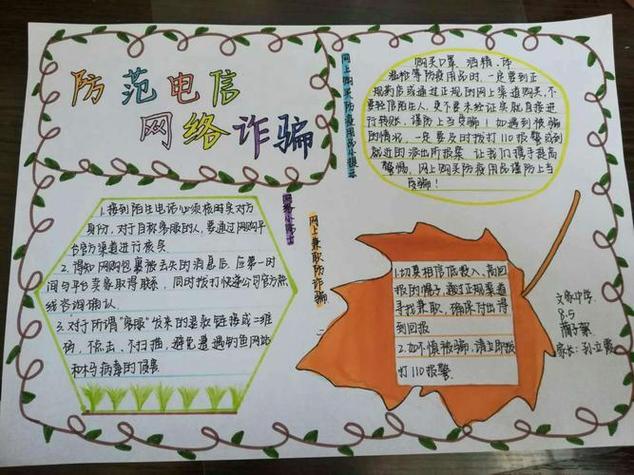 防范电信
网络诈骗
网上购买防疫用品小提示
购买口罩、酒精、体
温枪等防疫用品时，一定要到正
规药店或通过正规的网上渠道购买，不
要轻信陌生人，更不要未经证实就直接进
行转账，谨防上当受骗！如遇到被骗
的情况，一定要及时拨打110报警或到
就近的派出所报案，让我们携手提高
警惕，网上购买防疫用品谨防上当
受骗！
1.接到陌生电话必须核实对方
身份，对于自称客服的人，要通过网购平
台官方渠道进行核实
2.得知网购包裹被丢失的消息后，应第一时
间与平台卖家取得联系，同时拨打快递公司官方热
线咨询确认
3.对于所谓“客服”发来的退款链接或二维
码，不点击、不扫描，避免遭遇钓鱼网站
和木马病毒的侵害
网上兼职防诈骗
1.切莫相信低投入，高回
报的幌子，通过正规渠道
寻找兼职，确保付出得
到回报
2.如不慎被骗，请立即拨
打110报警.
8.5
家长：孙立霞